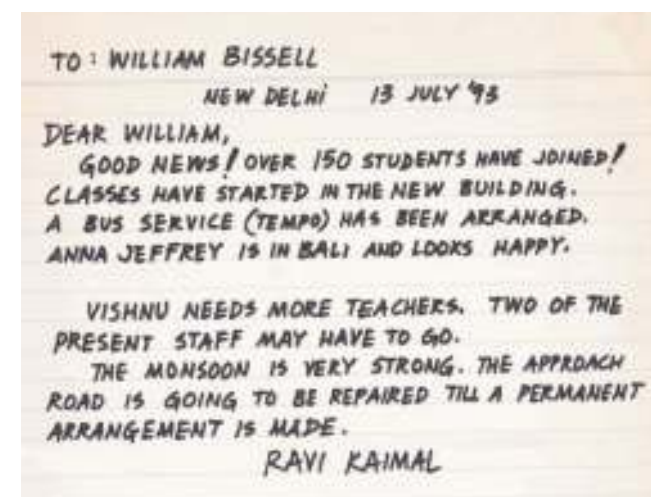 TO : WILLIAM BISSELL
NEW DELHi 13 JULY '93
DEAR WILLIAM,
GOOD NEWS! OVER 150 STUDENTS HAVE JOINED!
CLASSES HAVE STARTED IN THE NEW BUILDING.
A BUS SERVICE (TEMPO) HAS BEEN ARRANGED.
ANNA JEFFREY IS IN BALI AND LOOKS HAPPY.
VISHNU NEEDS MORE TEACHERS. TWO OF THE
PRESENT STAFF MAY HAVE TO GO.
THE MONSOON IS VERY STRONG. THE APPROACH
ROAD IS GOING TO BE REPAIRED TILL A PERMANENT
ARRANGEMENT IS MADE.
RAVI KAIMAL